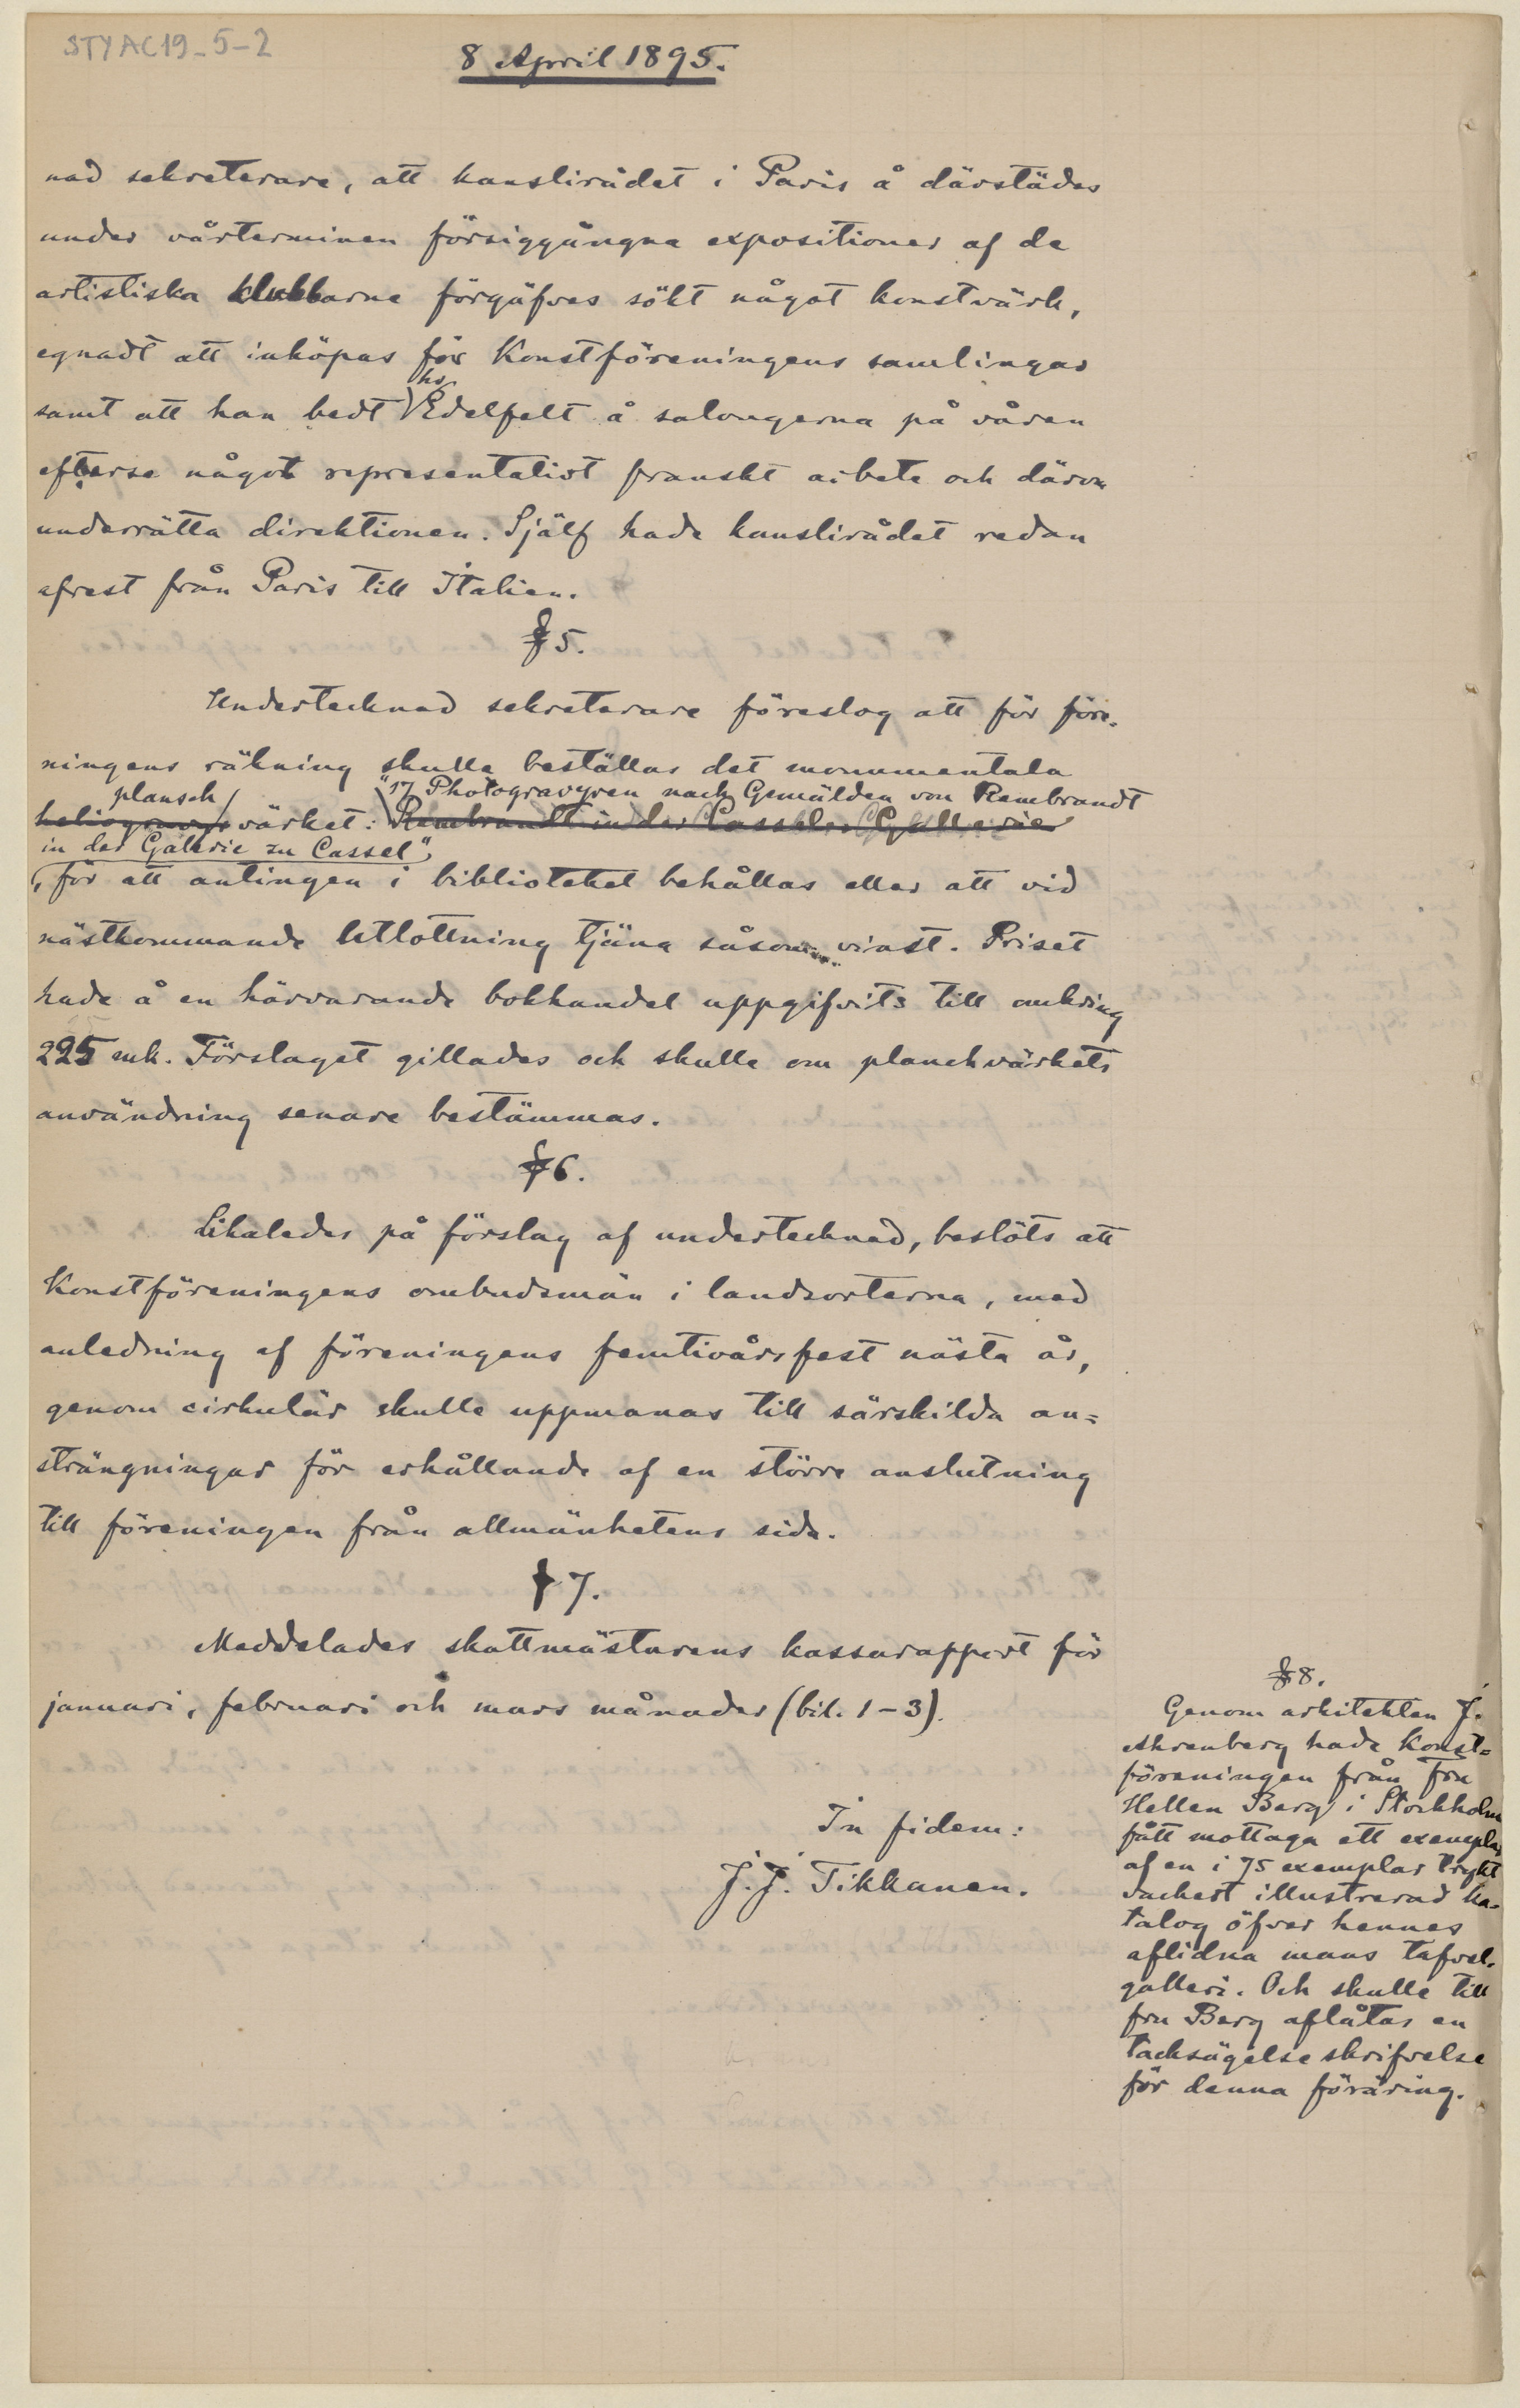 STYAC19-5-2
8 April 1895.
nad sekreterare, att kanslirådet i Paris å därstädes
under vårterminen försiggångna expositioner af de
artistiska klubbarne förgäfves sökt något konstvärk,
egnadt att inköpas för Konstföreningens samlingar
hr
samt att han bedt Edelfelt å salongerna på våren
efterse något representativt franskt arbete och därom
underrätta direktionen. Själf hade kanslirådet redan
afrest från Paris till Italien.
§ 5.
Undertecknad sekreterare föreslog att för före-
ningens räkning skulle beställas det monumentala
plansch "17 Photogravyren nach Gemälden von Rembrandt
heliogravyr värket: Rembrandt in der Casseler Gallerie
in der Galerie zu Cassel",
för att antingen i biblioteket behållas eller att vid
nästkommande utlottning tjäna såsom vinst. Priset
hade å en härvarande bokhandel uppgifvits till omkring
225 mk. Förslaget gillades och skulle om planchvärkets
användning senare bestämmas.
§ 6.
Likaledes på förslag af undertecknad, beslöts att
Konstföreningens ombudsmän i landsorterna, med
anledning af föreningens femtioårsfest nästa år,
genom cirkulär skulle uppmanas till särskilda an=
strängningar för erhållande af en större anslutning
till föreningen från allmänhetens sida.
§ 7.
Meddelades skattmästarens kassarapport för
januari, februari och mars månader (bil. 1-3).
In fidem:
J. J. Tikkanen.
§ 8.
Genom arkitekten J.
Ahrenberg hade Konst=
föreningen från Fru
Hellen Berg i Stockholm
fått mottaga ett exemplar
af en i 75 exemplar trykt
vackert illustrerad ka-
talog öfver hennes
aflidna mans tafvel-
galleri. Och skulle till
fru Berg aflåtas en
tacksägelseskrifvelse
för denna föräring.